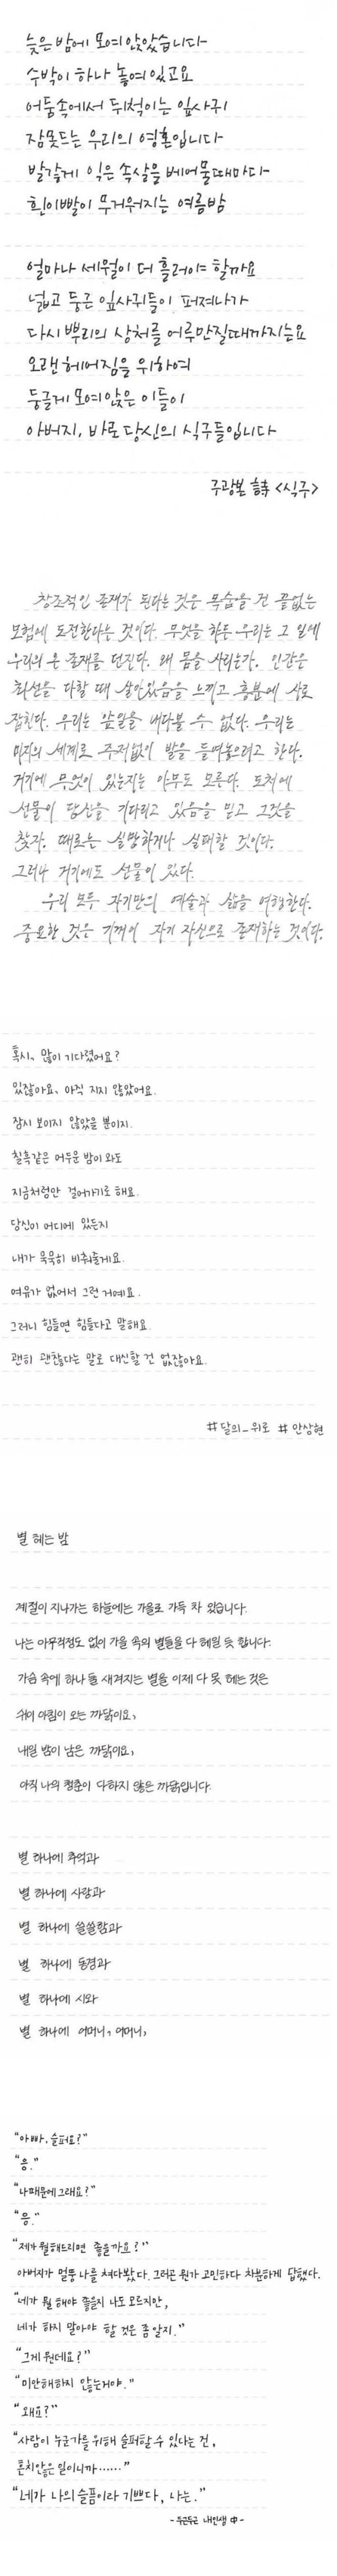 늦은 밤에 모여 앉았습니다
수박이 하나 놓여 있고요
어둠속에서 뒤척이는 잎사귀
잠못드는 우리의 영혼입니다
발갛게 익은 속살을 베어물때마다
흰이빨이 무거워지는 여름밤
얼마나 세월이 더 흘러야 할까요
넓고 둥근 잎사귀들이 퍼져나가
다시 뿌리의 상처를 어루만질때까지는요
오랜 헤어짐을 위하여
둥글게 모여앉은 이들이
아버지, 바로 당신의 식구들입니다
주광본 詩 <식구>
창조적인 존재가 된다는 것은 목숨을 건 끝없는
모험에 도전한다는 것이다. 무엇을 하든 우리는 그 일에
우리의 온 존재를 던진다. 왜 몸을 사리는가. 인간은
최선을 다할 때 살아있음을 느끼고 흥분에 사로
잡힌다. 우리는 앞일을 내다볼 수 없다. 우리는
미지의 세계로 주저없이 발을 들여놓으려고 한다.
거기에 무엇이 있는지는 아무도 모른다. 도처에
선물이 당신을 기다리고 있음을 믿고 그것을
찾자. 때로는 실망하거나 실패할 것이다.
그러나 거기에도 선물이 있다.
우리 모두 자기만의 예술과 삶을 여행한다.
중요한 것은 기꺼이 자기 자신으로 존재하는 것이다.
혹시, 많이 기다렸어요?
있잖아요, 아직 지지 않았어요.
잠시 보이지 않았을 뿐이지.
칠흑같은 어두운 밤이 와도
지금처럼만 걸어가기로 해요.
당신이 어디에 있든지
내가 묵묵히 비춰줄게요.
여유가 없어서 그런 거예요.
그러니 힘들면 힘들다고 말해요.
괜히 괜찮다는 말로 대신할 건 없잖아요.
#달의_위로 #안상현
별 헤는 밤
계절이 지나가는 하늘에는 가을로 가득 차 있습니다.
나는 아무걱정도 없이 가을 속의 별들을 다 헤일 듯 합니다.
가슴 속에 하나 둘 새겨지는 별을 이제 다 못 헤는 것은
쉬이 아침이 오는 까닭이요,
내일 밤이 남은 까닭이요,
아직 나의 청춘이 다하지 않은 까닭입니다.
별 하나에 추억과
별 하나에 사랑과
별 하나에 쓸쓸함과
별 하나에 동경과
별 하나에 시와
별 하나에 어머니, 어머니,
"아빠, 슬퍼요?"
"응."
"나때문에 그래요?"
"응."
"제가 뭘해드리면 좋을까요?"
아버지가 멀뚱 나를 쳐다봤다. 그러곤 뭔가 고민하다 차분하게 답했다.
"네가 뭘 해야 좋을지 나도 모르지만,
네가 하지 말아야 할 것은 좀 알지."
"그게 뭔데요?"
"미안해하지 않는거야."
"왜요?"
"사람이 누군가를 위해 슬퍼할 수 있다는 건,
흔치않은 일이니까......"
"네가 나의 슬픔이라 기쁘다, 나는."
- 두근두근 내인생 中 -